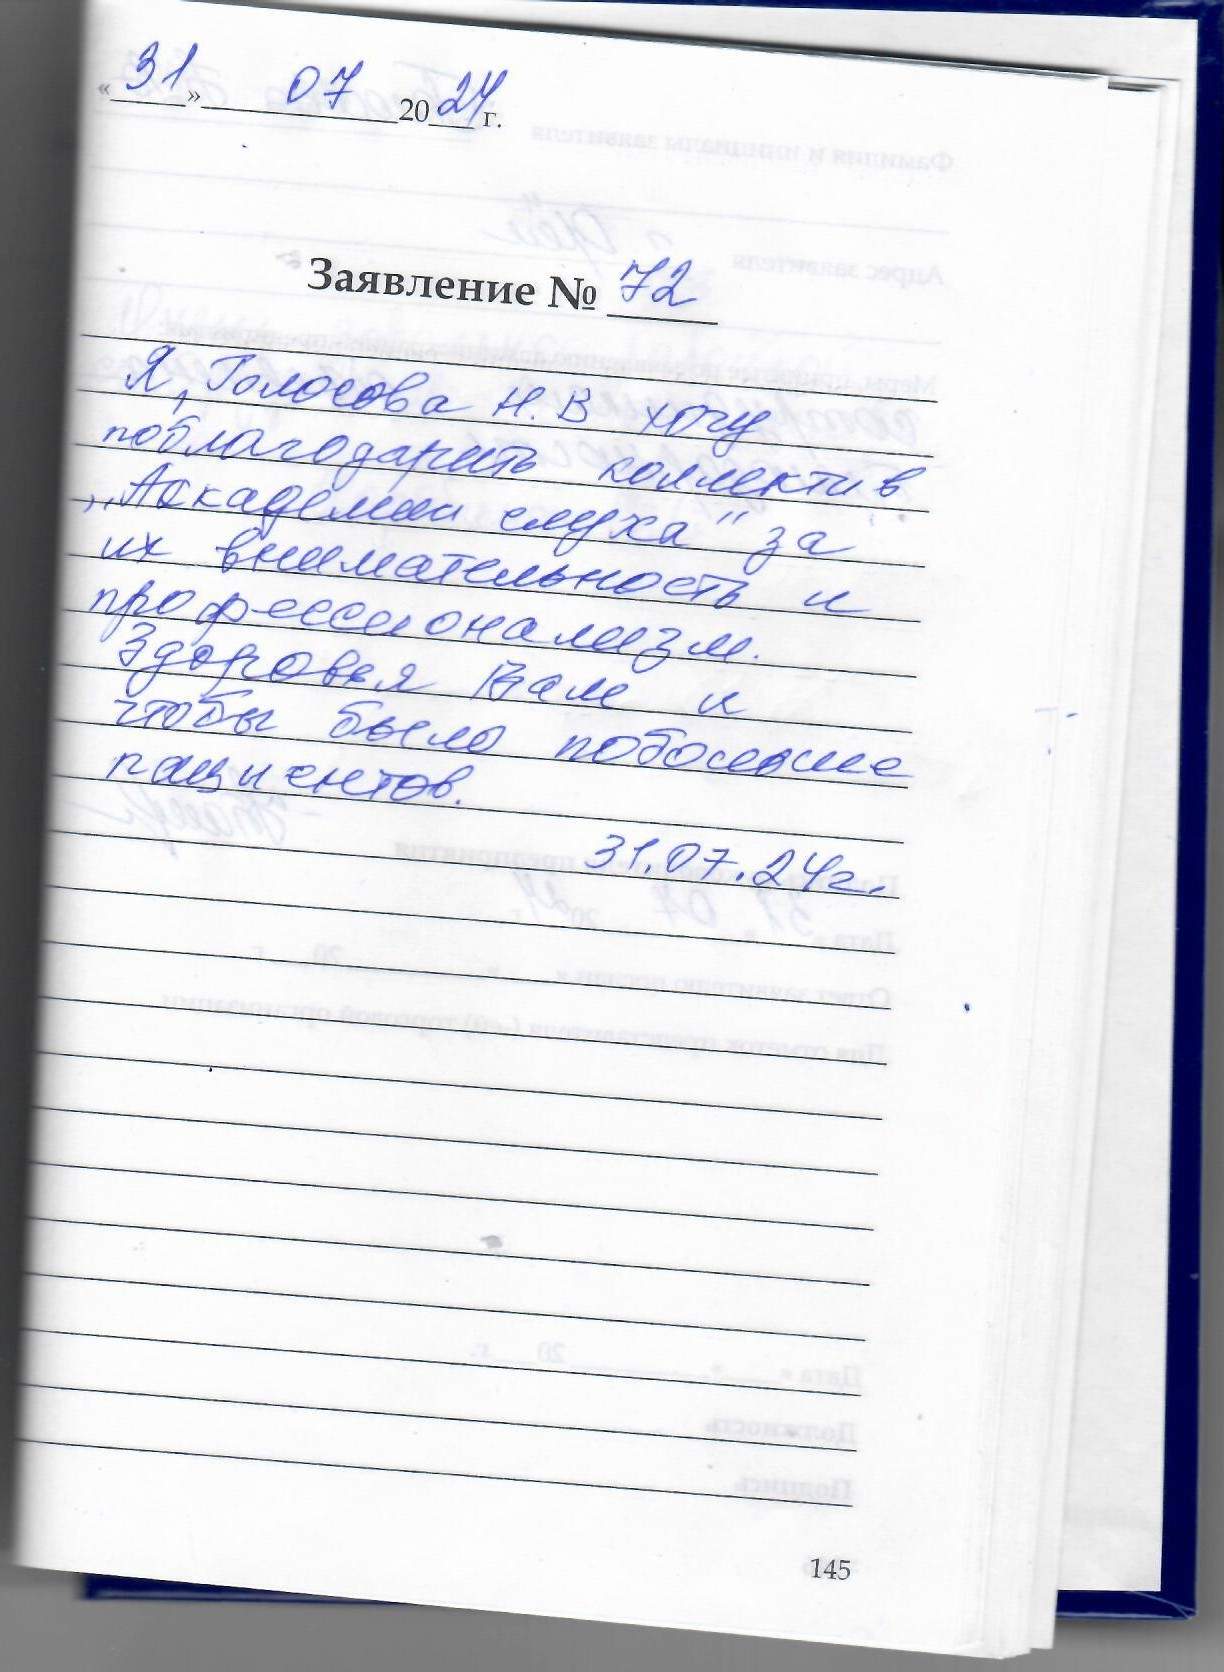 «31» 07 2024 г.
Заявление № 72
Я, Голосова Н. В хочу
поблагодарить коллектив
„Академии слуха" за
их внимательность и
профессионализм.
Здоровья Вам и
чтобы было побольше
пациентов.
31.07.24г.
145